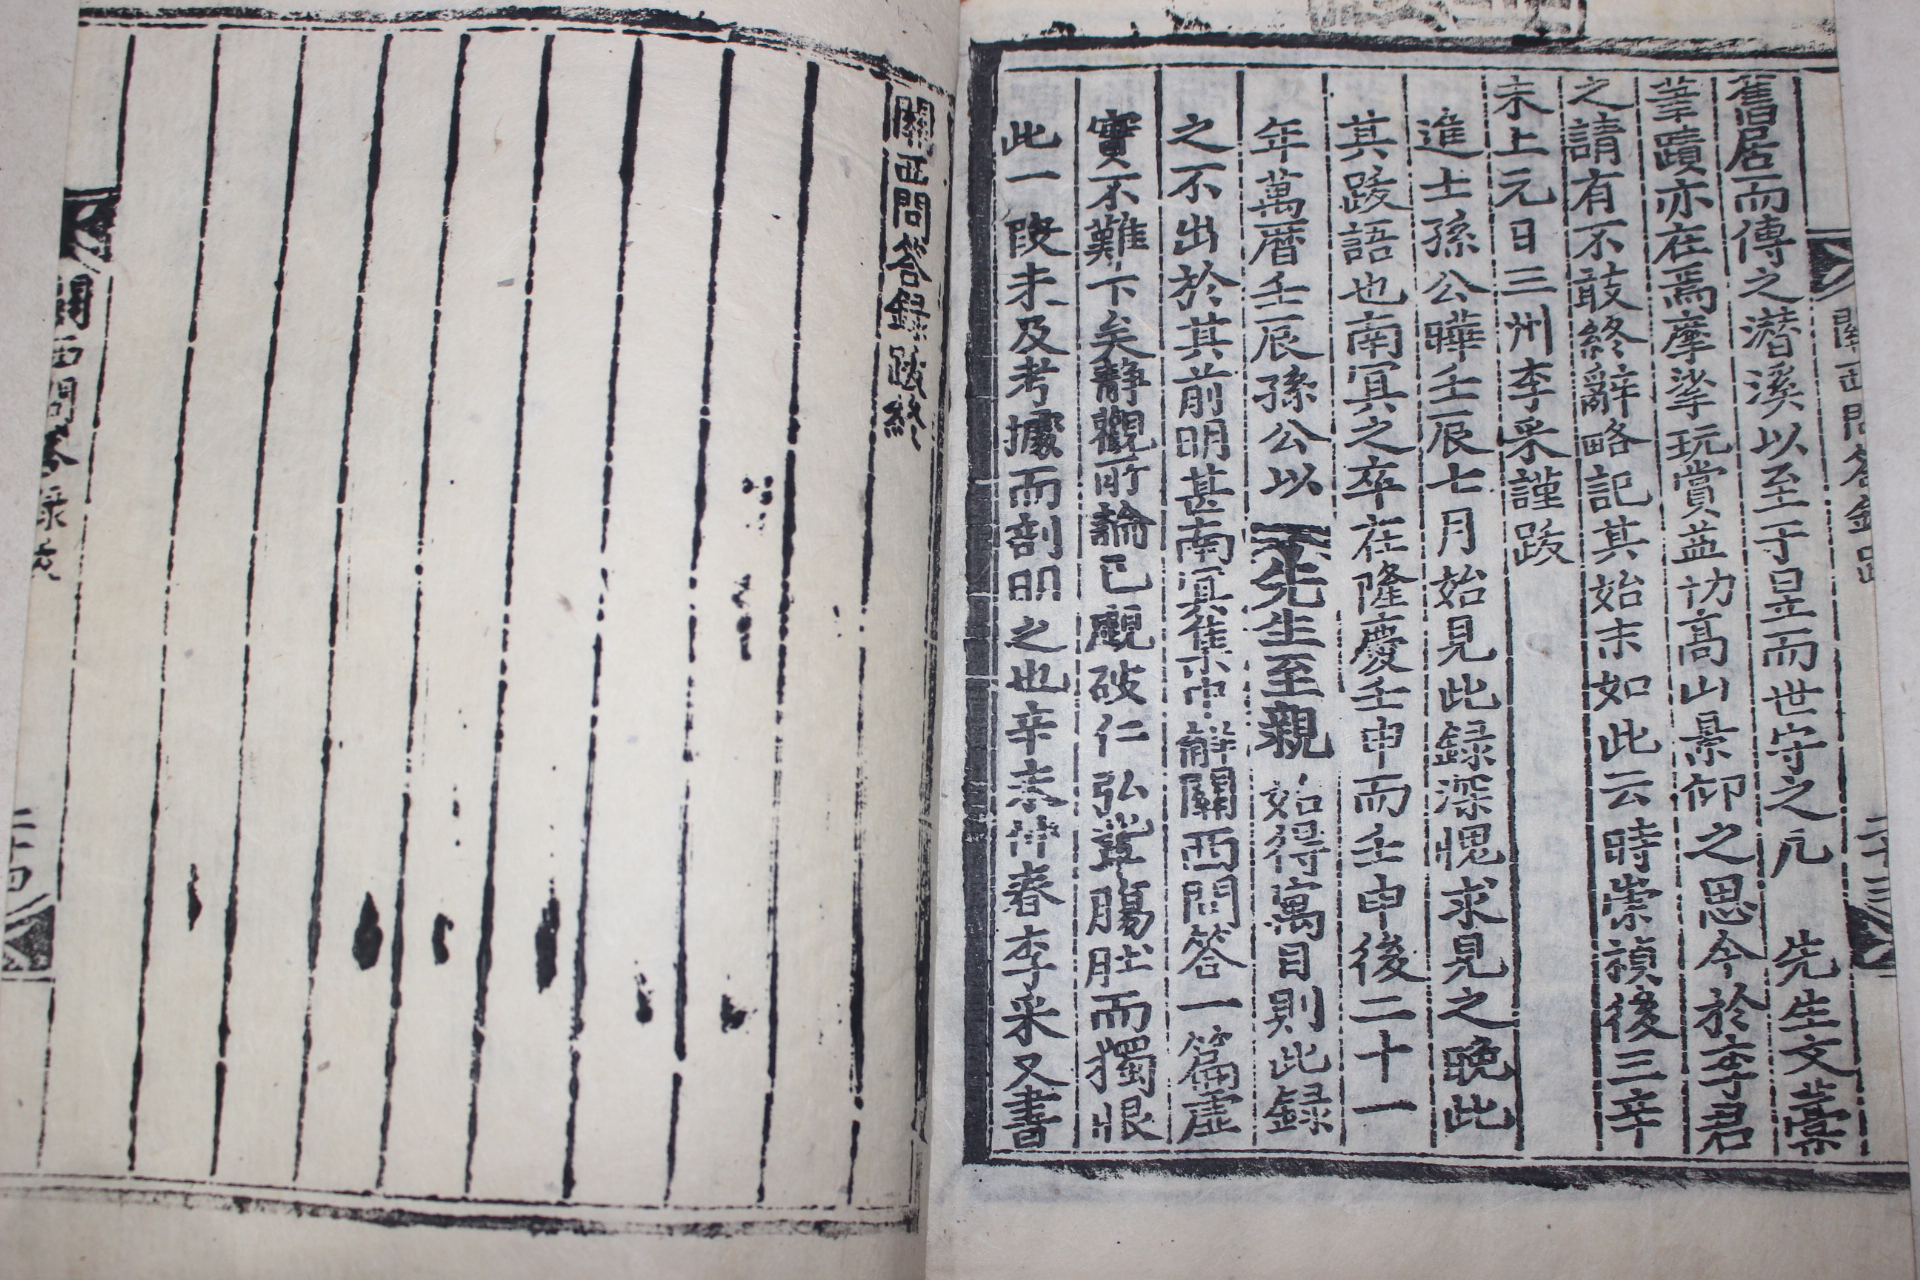 舊居而傳之潛溪以至于是而世守之凡 先生文藁
筆蹟亦在焉摩挲玩賞益切高山景仰之思今於李君
之請有不敢終辭略記其始末如此云時崇禎後三辛
未上元日三州李采謹跋
進士孫公曄壬辰七月始見此錄深愧求見之晩此
其跋語也南冥之卒在隆慶壬申而壬申後二十一
年萬曆壬辰孫公以 先生至親 始得寓目則此錄
之不出於其前明甚南冥集中解關西問答一篇虛
實不難卞矣靜觀所論已覷破仁弘 腸肚而獨恨
此一段未及考據而剖明之也辛未仲春李采又書
關西問答錄跋
二十三
關西問答錄跋終
關西問答錄跋
二十四